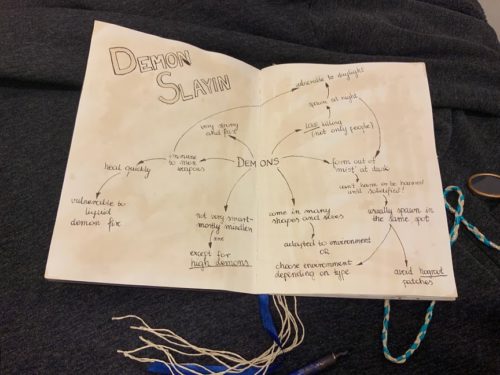 DEMON
SLAYIN
vulnerable to daylight
spawn at night
LOVE killing
(not only people)
very strong
and fast
immune
to most
weapons
heal quickly
vulnerable to
liquid
demon fire
DEMONS
form out of
"mist" at dusk
can't harm or be harmed
until solidified!
usually spawn in
the same spot
avoid
patches
not very smart-
mostly mindless
except for
high demons
come in many
shapes and sizes
adapted to environment
OR
choose environment
depending on type